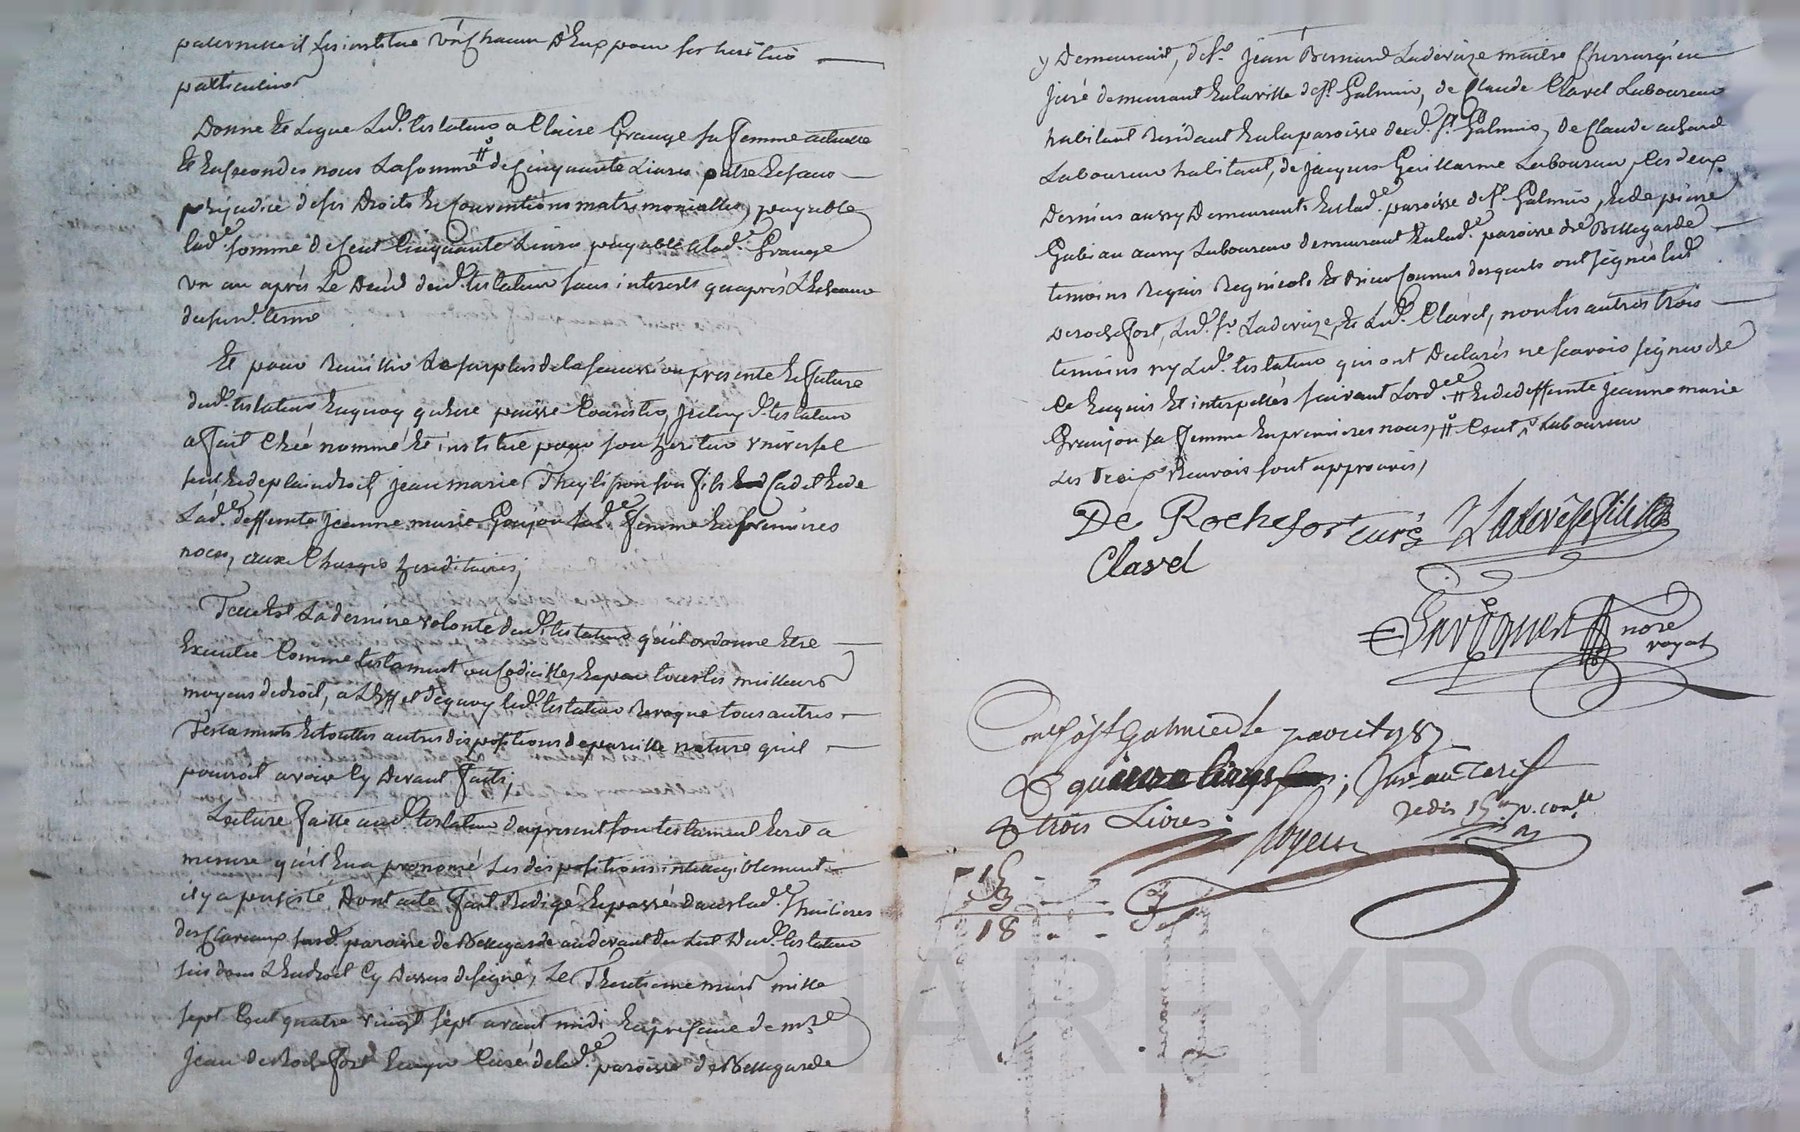 paternelle il les institue un chacun d'eux pour ses heritiers
particuliers
Donne et legue led. testateur a Claire Grange sa femme actuelle
et en secondes noces la somme # de cinquante Livres outre et sans
prejudice de ses Droits et conventions matrimonialles, payable
lad.e somme de cent Cinquante Livres payable a lad.e Grange
un an après Le Décès dud. testateur sans interests qu'après L'echeance
dud. terme
Et pour le surplus de la succession presente et future
dud. testateur en quoy qu'elle puisse Consister, led. testateur
a fait Créé nommé et institué pour son heritier universel
seul et de plain droit, jean marie son fils Cadet et de
Lad.e deffunte jeanne marie Goujon sad.e femme en premieres
noces, aux Charges hereditaires,
Telle est La derniere volonté dud. testateur qu'il ordonne Etre
Executée Comme testament ou Codicille, et par tous les meilleurs
moyens de droit, a L'effet de quoy led. testateur revoque tous autres
Testaments et touttes autres dispositions de pareille nature qu'il
pourroit avoir Cy Devant faits,
Lecture faitte aud. testateur du present son testament ecrit a
mesure qu'il en a prononcé Les dispositions intelligiblement
il y a persisté, Dont acte fait Redigé et passé dans lad.e
susd. paroisse de Bellegarde au devant du Lit Dud. testateur
sis dans L'endroit Cy Dessus designé, Le Trentieme mars mille
sept Cent quatre vingt sept avant midi En presence de m.re
Jean de Rochefort Curé de lad.e paroisse de Bellegarde
y Demeurant, de s.r Jean Bernard Ladevèze maitre Chirurgien
juré demeurant en la ville de S.t Galmier, de Claude Clavel Laboureur
habitant Residant en la paroisse dud. S.t Galmier, de Claude
Laboureur habitant, de jacques Guillarme Laboureur, les deux
Derniers aussy Demeurants en lad.e paroisse de S.t Galmier, et de pierre
aussy Laboureur demeurant en lad.e paroisse de Bellegarde
temoins Requis desquels ont signés led.
De rochefort, Led. s.r Ladevèze, et Led. Clavel, non les autres trois
temoins ny Led. testateur qui ont Declarés ne scavoir signer de
Ce Enquis et interpellés suivant Lord.ce # et de deffunte jeanne marie
Goujon sa femme en premieres noces, # Cent, Laboureur
Les trois Renvois sont approuvés,
De Rochefort curé Ladevèse
Clavel
nore
royal
Conté à S.t Galmier Le 7 avril 1787
quinze livres ; Juré au Tarif
trois Livres.
15
3
18
CHAREYRON